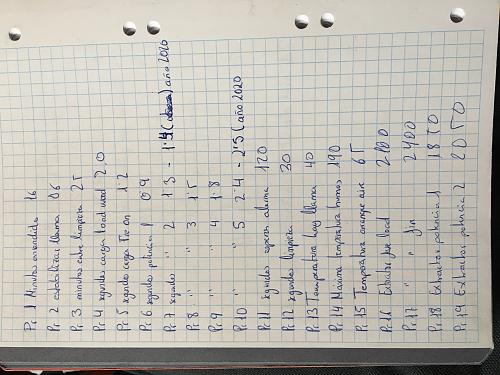 Pr. 1 Minutos encendido 16
Pr. 2 estabilizar llama 06
Pr. 3 minutos entre limpieza 25
Pr. 4 segundos carga load wood 2,0
Pr. 5 segundos carga Fire on 1.2
Pr. 6 segundos potencia 1 0.9
Pr. 7 segundos " 2 1.3 - 1.4 año 2020
Pr. 8 " " 3 1.5
Pr. 9 " " 4 1.8
Pr. 10 " " 5 2.4 - 2.5 (año 2020
Pr. 11 segundos espera alarma 120
Pr. 12 segundos limpieza 30
Pr. 13 Temperatura hay llama 40
Pr. 14 Máxima temperatura humos 190
Pr. 15 Temperatura arranque aire 65
Pr. 16 Extractor fire load 2100
Pr. 17 " " fin 2400
Pr. 18 Extractor potencia 1 1850
Pr. 19 Extractor potencia 2 2050